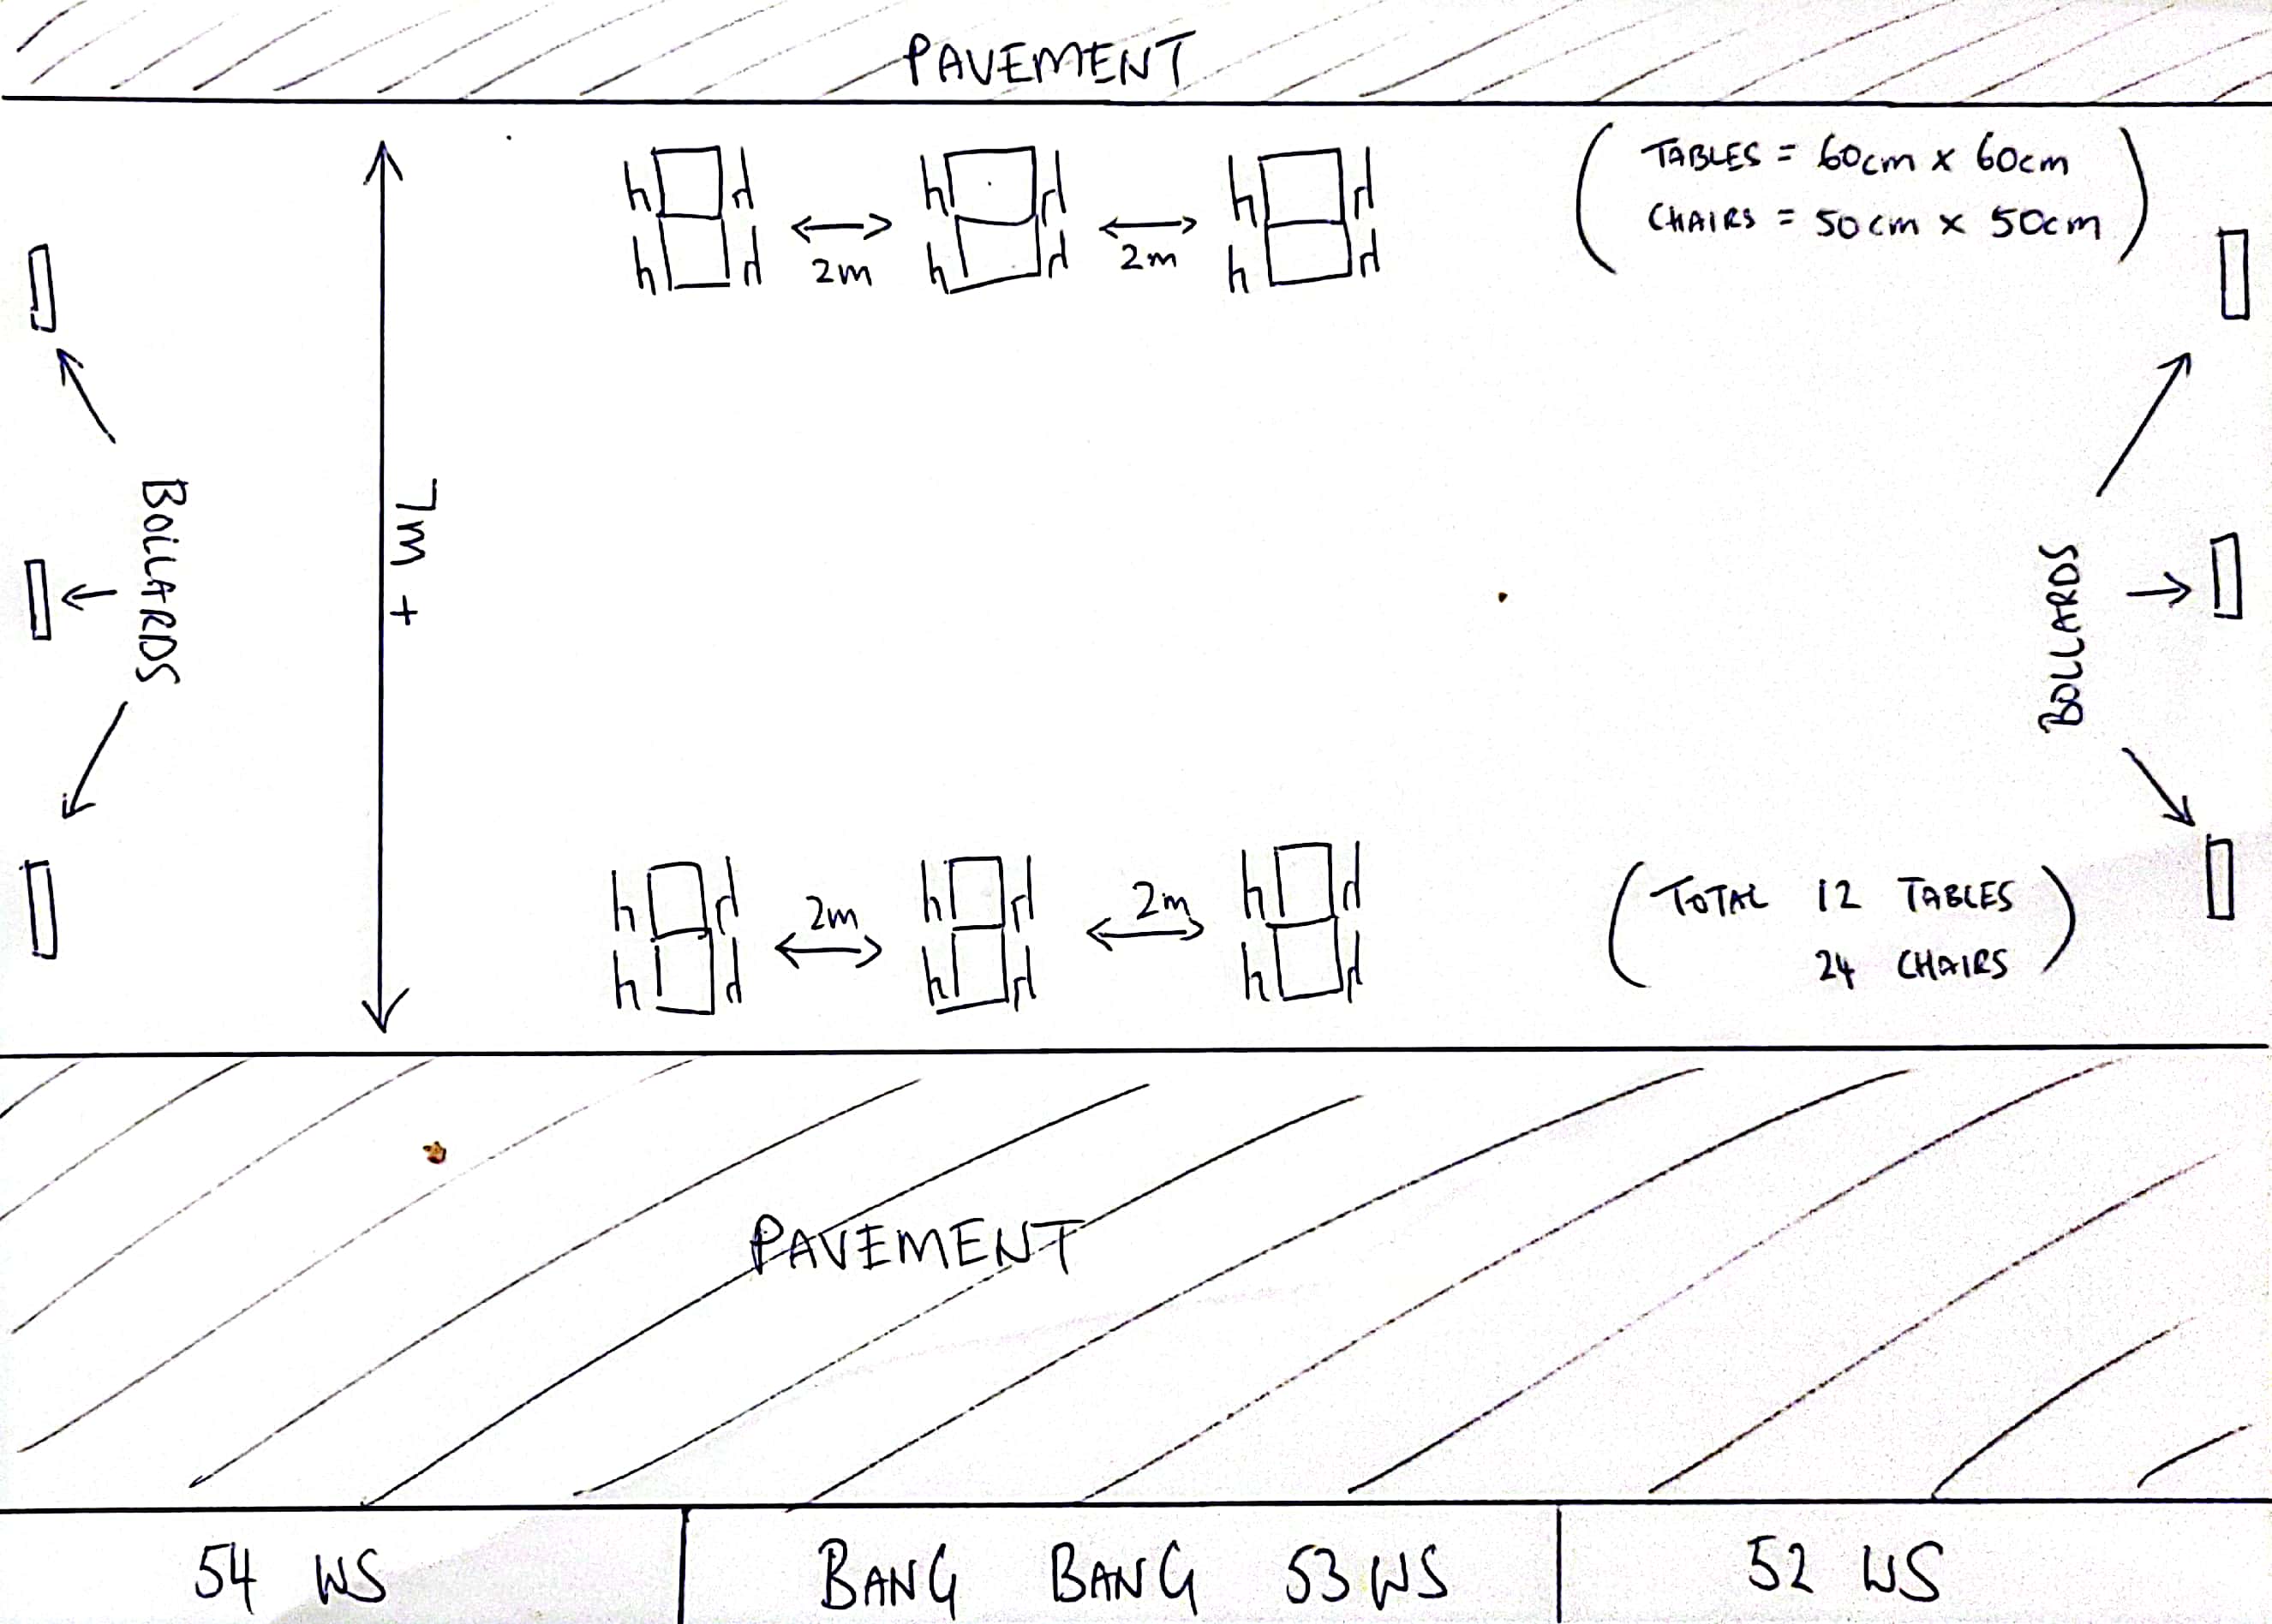 PAVEMENT
TABLES = 60cm x 60cm
CHAIRS = 50cm x 50cm
2m
2m
BOLLARDS
7m +
BOLLARDS
2m
2m
TOTAL 12 TABLES
24 CHAIRS
PAVEMENT
54 WS
BANG BANG 53 WS
52 WS